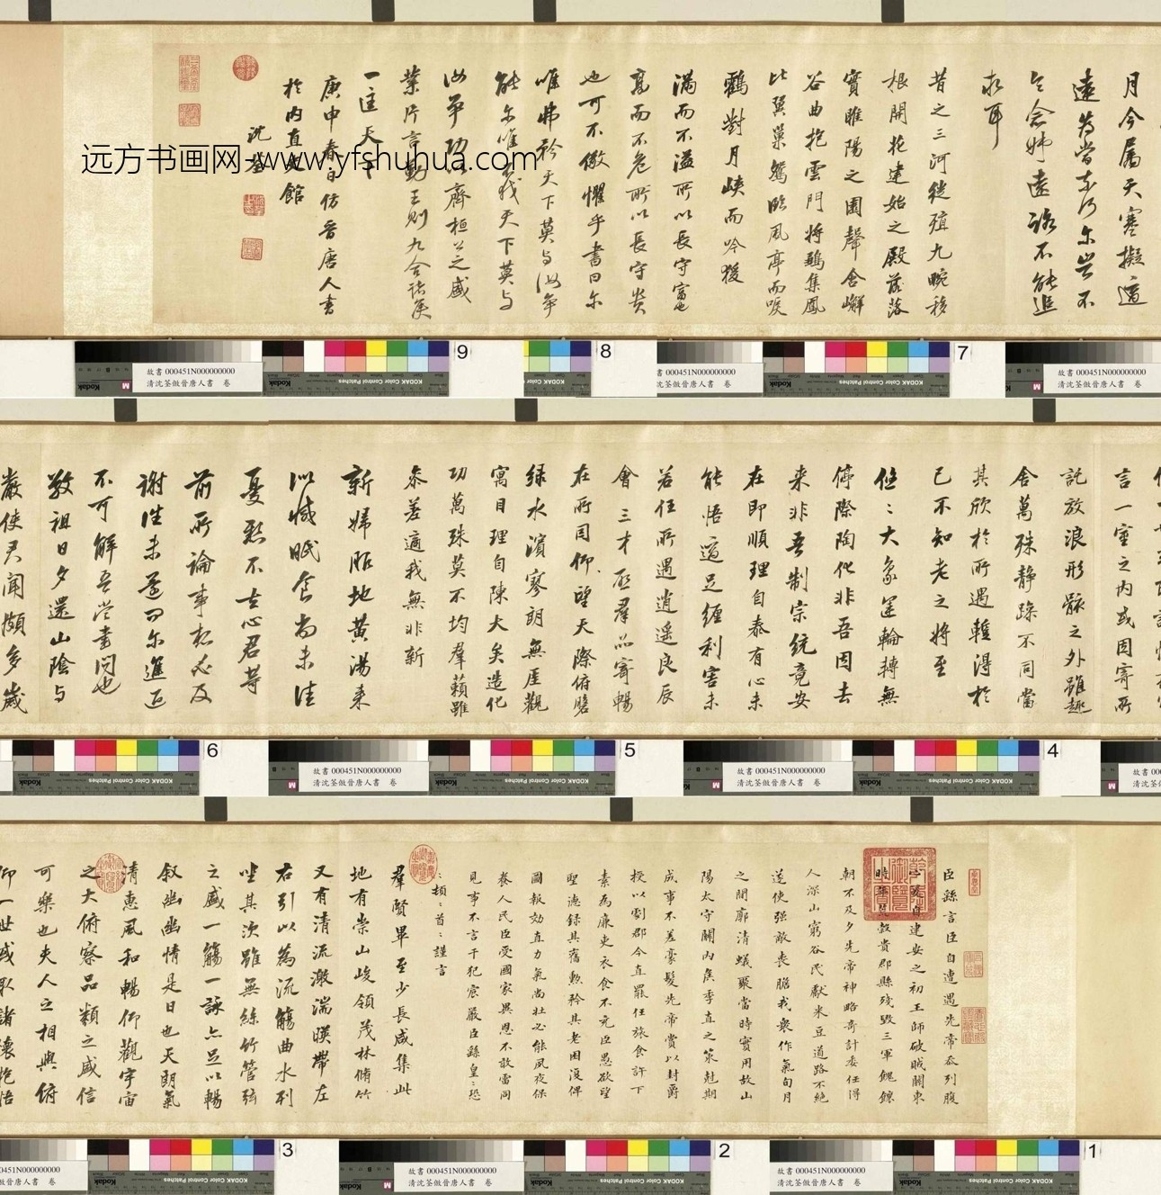 臣繇言臣自遭遇先帝忝列腹
建安之初王師破賊關東
時年荒穀貴郡縣殘毀三軍餽饟
朝不及夕先帝神略奇計委任得
人深山窮谷民獻米豆道路不絕
遂使強敵喪膽我衆作氣旬月
之間廓清蟻聚當時實用故山
陽太守關內侯季直之策剋期
成事不差豪髮先帝賞以封爵
授以劇郡今直罷任旅食許下
素為廉吏衣食不充臣愚欲望
聖德錄其舊勲矜其老困復俾
圖報效直力氣尚壯必能夙夜保
養人民臣受國家異恩不敢雷同
見事不言干犯宸嚴臣繇皇〻恐
〻頓〻首〻謹言
羣賢畢至少長咸集此
地有崇山峻領茂林脩竹
又有清流激湍暎帶左
右引以為流觴曲水列
坐其次雖無絲竹管弦
之盛一觴一詠亦足以暢
叙幽幽情是日也天朗氣
清惠風和暢仰觀宇宙
之大俯察品類之盛信
可樂也夫人之相與俯
仰一世或取諸懷抱悟
言一室之內或因寄所
託放浪形骸之外雖趣
舍萬殊靜躁不同當
其欣於所遇暫得於
已不知老之將至
悠〻大象運輪轉無
停際陶化非吾因去
來非吾制宗統竟安
在即順理自泰有心未
能悟適足纏利害未
若任所遇逍遥良辰
會三才羣品寄暢
在所因仰望天際俯瞻
綠水濱寥朗無厓觀
寓目理自陳大矣造化
功萬殊莫不均羣籟雖
參差適我無非新
新婦服地黃湯來
似減眠食尚未佳
憂懸不去心君等
前所論事想必及
謝生未還可爾進退
不可解吾當書問也
敬祖日夕還山陰與
嚴使君聞頗多歲
月今屬天寒擬適
遠為當奈何爾豈不
念姊遠路不能追
求耳
昔之三河徙殖九畹移
根開花建始之殿落
實睢陽之園聲含嶰
谷曲抱雲門將鶵集鳳
比翼巢鴛臨風亭而唳
鶴對月峽而吟猨
滿而不溢所以長守富也
高而不危所以長守貴
也可不儆懼乎書曰爾
唯弗矜天下莫與汝爭
能爾唯弗伐天下莫與
汝爭功故齊桓公之盛
業片言勤王則九合諸侯
一匡天下
庚申春日仿晉唐人書
於內直史館
沈荃
远方书画网-www.yfshuhua.com
故書 000451N000000000
清沈荃倣晉唐人書 卷
Kodak
KODAK Color Control Patches
1
2
3
4
5
6
7
8
9